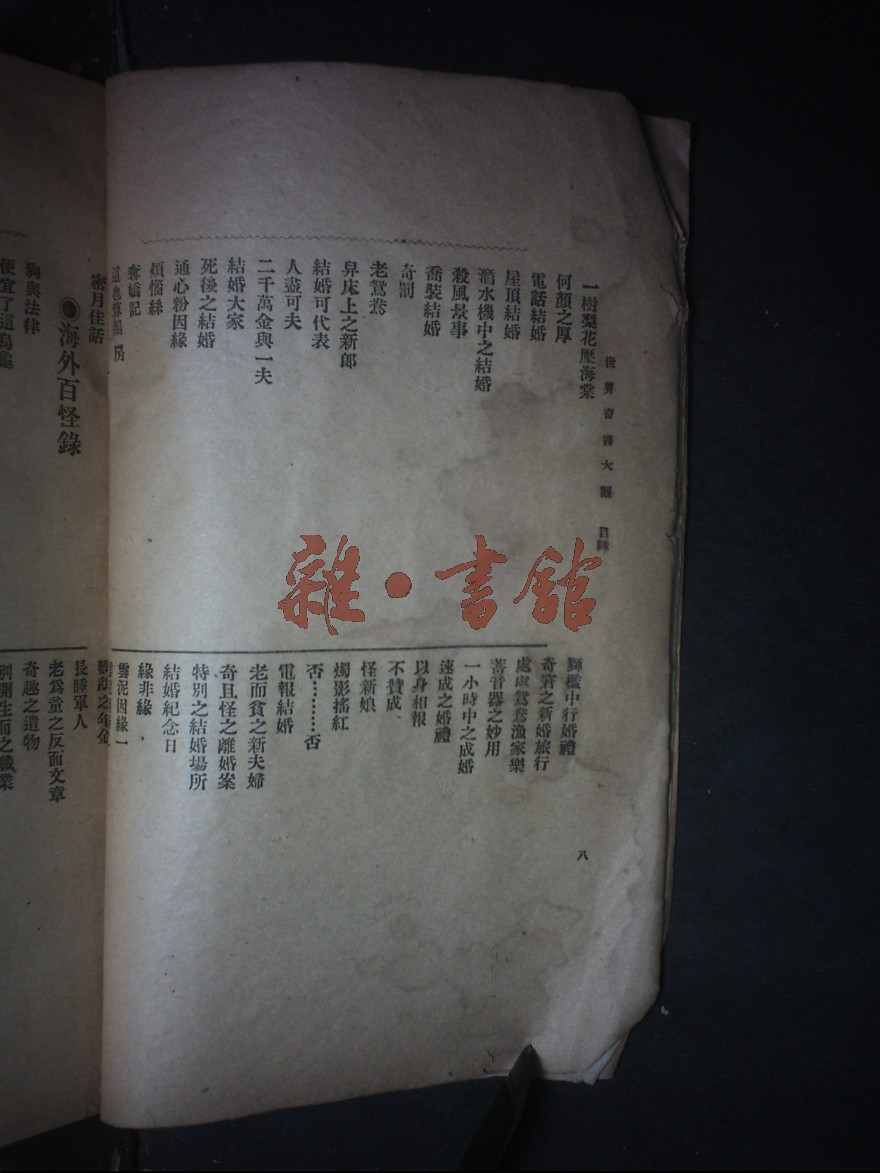 世界奇書大觀 目錄
一樹梨花壓海棠
何顏之厚
電話結婚
屋頂結婚
潛水機中之結婚
殺風景事
喬裝結婚
奇罰
老鴛鴦
舁床上之新郎
結婚可代表
人盡可夫
二千萬金與一夫
結婚大家
死後之結婚
通心粉因緣
煩惱絲
奪嬌記
密月佳話
◉海外百怪錄
狗與法律
便宜了這烏龜
獅檻中行婚禮
奇窘之新婚旅行
處處鴛鴦漁家樂
蓄音器之妙用
一小時中之成婚
速成之婚禮
以身相報
不贊成
怪新娘
燭影搖紅
否…………否
電報結婚
老而貧之新夫婦
奇且怪之離婚案
特別之結婚場所
結婚紀念日
緣非緣
雲泥因緣一
長睡軍人
老爲童之反面文章
奇趣之遺物
別開生面之職業
八
雜·書館